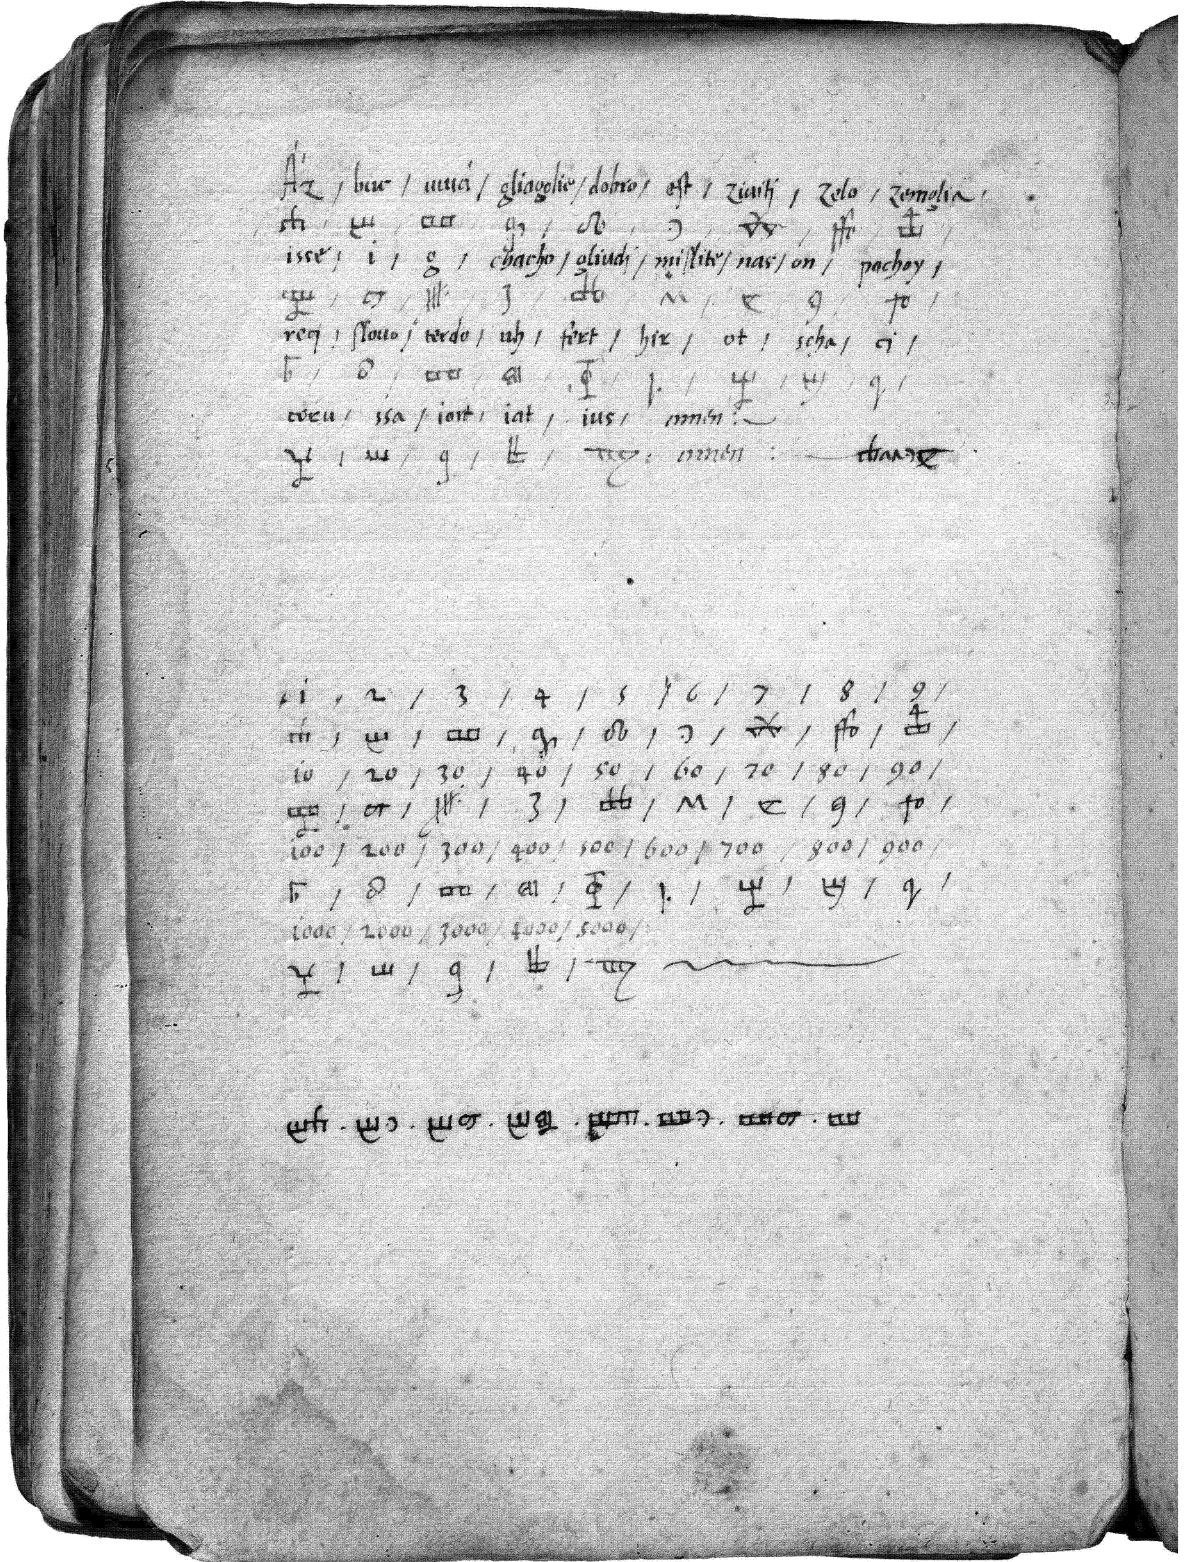 Az / buc / uuá / gliagolie / dobro / est / ziuiti / zelo / zemglia /
ⰰ / ⰱ / ⰲ / ⰳ / ⰴ / ⰵ / ⰶ / ⰷ / ⰸ /
isse / i / g / chacho / gliudi / mislite / nas / on / pochoy /
ⰹ / ⰻ / ⰼ / ⰽ / ⰾ / ⰿ / ⱀ / ⱁ / ⱂ /
reci / slouo / terdo / uh / fert / hir / ot / scha / ci /
ⱃ / ⱄ / ⱅ / ⱆ / ⱇ / ⱈ / ⱉ / ⱋ / ⱌ /
ceru / ssa / iort / iat / ius / amen :
ⱍ / ⱎ / ⱏ / ⱑ / ⱓ : amen : ⰰⰿⰵⱀ
1 / 2 / 3 / 4 / 5 / 6 / 7 / 8 / 9 /
ⰰ / ⰱ / ⰲ / ⰳ / ⰴ / ⰵ / ⰶ / ⰷ / ⰸ /
10 / 20 / 30 / 40 / 50 / 60 / 70 / 80 / 90 /
ⰹ / ⰻ / ⰼ / ⰽ / ⰾ / ⰿ / ⱀ / ⱁ / ⱂ /
100 / 200 / 300 / 400 / 500 / 600 / 700 / 800 / 900 /
ⱃ / ⱄ / ⱅ / ⱆ / ⱇ / ⱈ / ⱉ / ⱋ / ⱌ /
1000 / 2000 / 3000 / 4000 / 5000 /
ⱍ / ⱎ / ⱏ / ⱑ / ⱓ